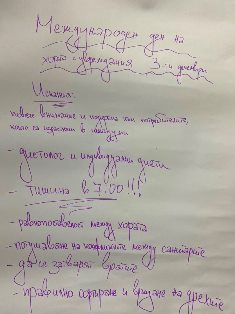 Международен ден на
хората с увреждания 3-ти декември
Искания:
повече внимание и подкрепа към потребителите,
които са израснали в
- диетолог и индивидуални диети
- Тишина в 7:00!!!
- равнопоставеност между хората
- между санитарите
- да се затварят вратите
- правилно сортиране и връщане на дрехите